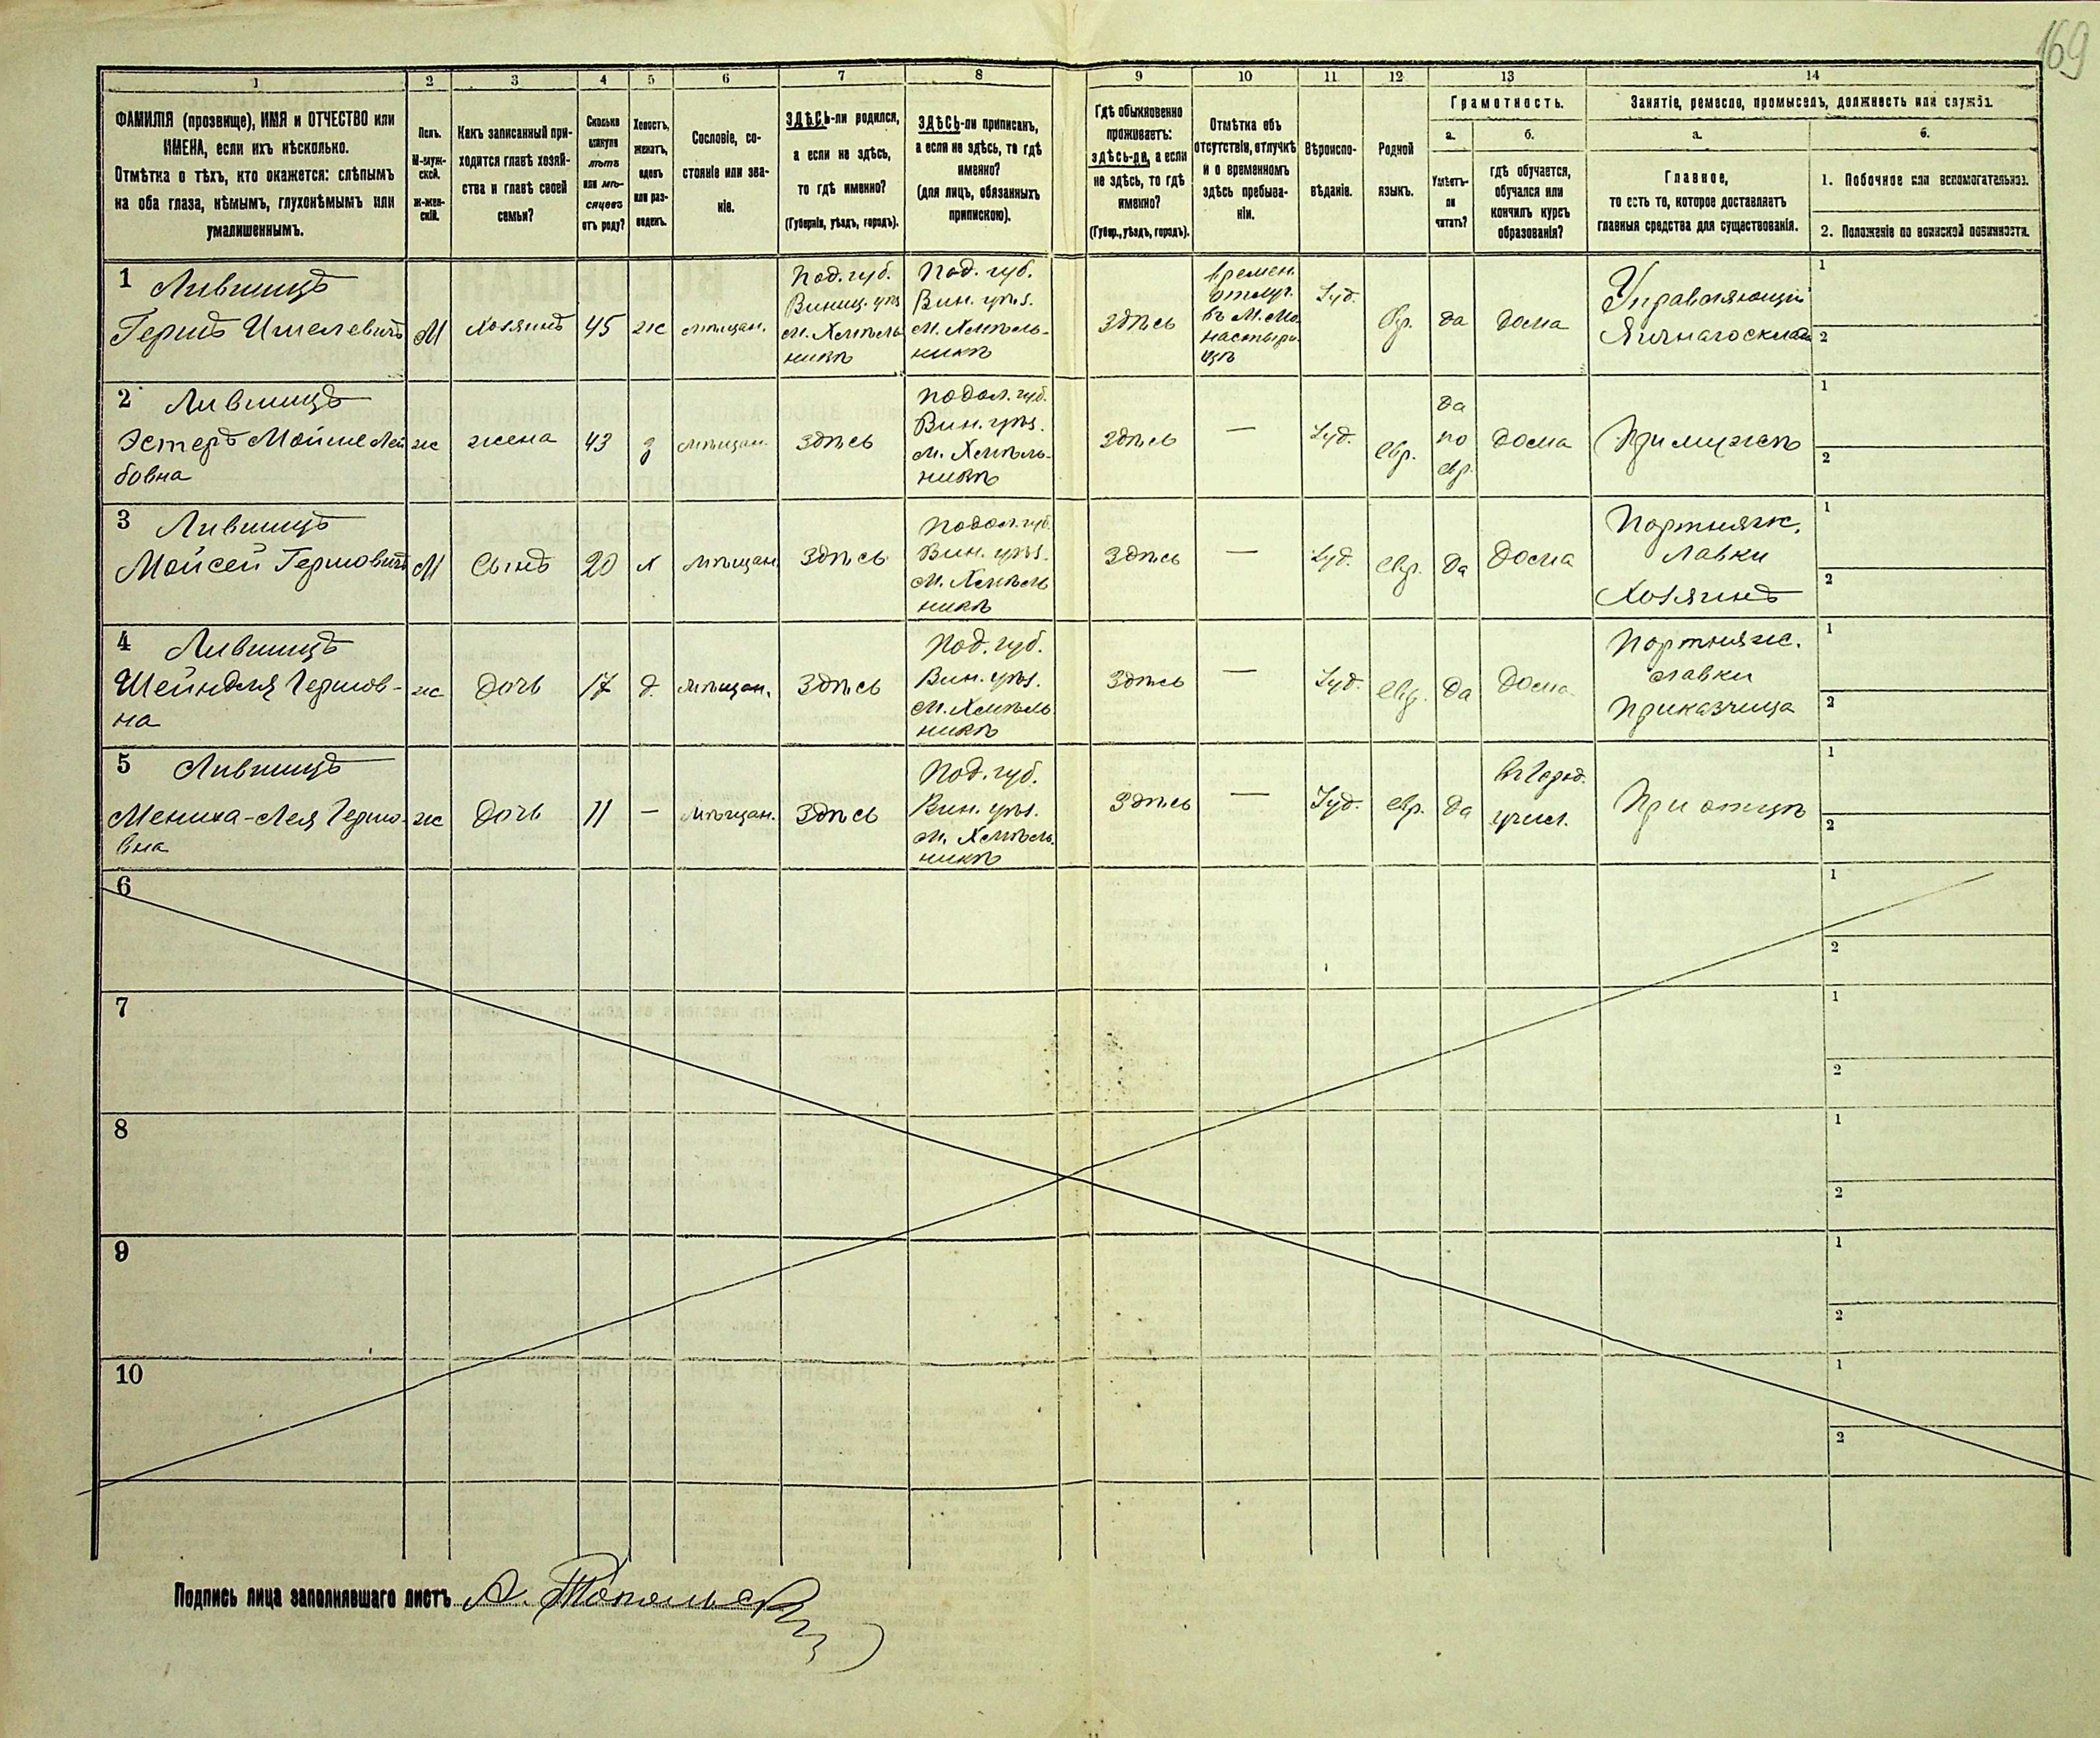 169
1 2 3 4 5 6 7 8 9 10 11 12 13 14
ФАМИЛІЯ (прозвище), ИМЯ и ОТЧЕСТВО или
ИМЕНА, если ихъ нѣсколько.
Отмѣтка о тѣхъ, кто окажется: слѣпымъ
на оба глаза, нѣмымъ, глухонѣмымъ или
умалишеннымъ.
Полъ.
М-муж-
ской.
Ж-жен-
скій.
Какъ записанный при-
ходится главѣ хозяй-
ства и главѣ своей
семьи?
Сколько
минуло
лѣтъ
или мѣ-
сяцевъ
отъ роду?
Холостъ,
женатъ,
вдовъ
или раз-
веденъ.
Сословіе, со-
стояніе или зва-
ніе.
ЗДѢСЬ-ли родился,
а если не здѣсь,
то гдѣ именно?
(Губернія, уѣздъ, городъ).
ЗДѢСЬ-ли приписанъ,
а если не здѣсь, то гдѣ
именно?
(для лицъ, обязанныхъ
припискою).
Гдѣ обыкновенно
проживаетъ:
здѣсь-ли, а если
не здѣсь, то гдѣ
именно?
(Губер., уѣздъ, городъ).
Отмѣтка объ
отсутствіи, отлучкѣ
и о временномъ
здѣсь пребыва-
ніи.
Вѣроиспо-
вѣданіе.
Родной
языкъ.
Грамотность.
а.
Умѣетъ-
ли
читать?
б.
гдѣ обучается,
обучался или
кончилъ курсъ
образованія?
Занятіе, ремесло, промыселъ, должность или служба.
а.
Главное,
то есть то, которое доставляетъ
главныя средства для существованія.
б.
1. Побочное или вспомогательное.
2. Положеніе по воинской повинности.
1 Лившицъ
Гершъ Ишелевичъ
М
Хозяинъ
45
ж
мѣщан.
Под. губ.
Винниц. уѣз
м. Хмѣль
никѣ
Под. губ.
Вин. уѣз.
м. Хмѣль-
никѣ
Здѣсь
времен.
отлуч.
въ м. Мо
настыри
щѣ
Іуд.
Евр.
да
дома
Управляющій
Яичнаго склада
1
2
2 Лившицъ
Эстеръ Мойше Лей
бовна
ж
жена
43
з
мѣщан.
Здѣсь
Подол. губ.
Вин. уѣз.
м. Хмѣль-
никѣ
Здѣсь
—
Іуд.
евр.
да
по
евр.
дома
При мужѣ
1
2
3 Лившицъ
Мойсей Гершовичъ
М
Сынъ
20
х
мѣщан.
Здѣсь
Подол. губ.
Вин. уѣз.
м. Хмѣль
никѣ
Здѣсь
—
Іуд.
евр.
да
дома
Портняж.
лавки
Хозяинъ
1
2
4 Лившицъ
Шейндля Гершов-
на
ж
Дочь
17
д.
мѣщан.
Здѣсь
Под. губ.
Вин. уѣз.
м. Хмѣль
никѣ
Здѣсь
—
Іуд.
евр.
да
дома
Портняж.
лавки
Приказчица
1
2
5 Лившицъ
Мениха-Лея Гершо-
вна
ж
Дочь
11
—
мѣщан.
Здѣсь
Под. губ.
Вин. уѣз.
м. Хмѣль-
никѣ
Здѣсь
—
Іуд.
евр.
да
въ Город.
учил.
При отцѣ
1
2
6
1
2
7
1
2
8
1
2
9
1
2
10
1
2
Подпись лица заполнявшаго листъ А.